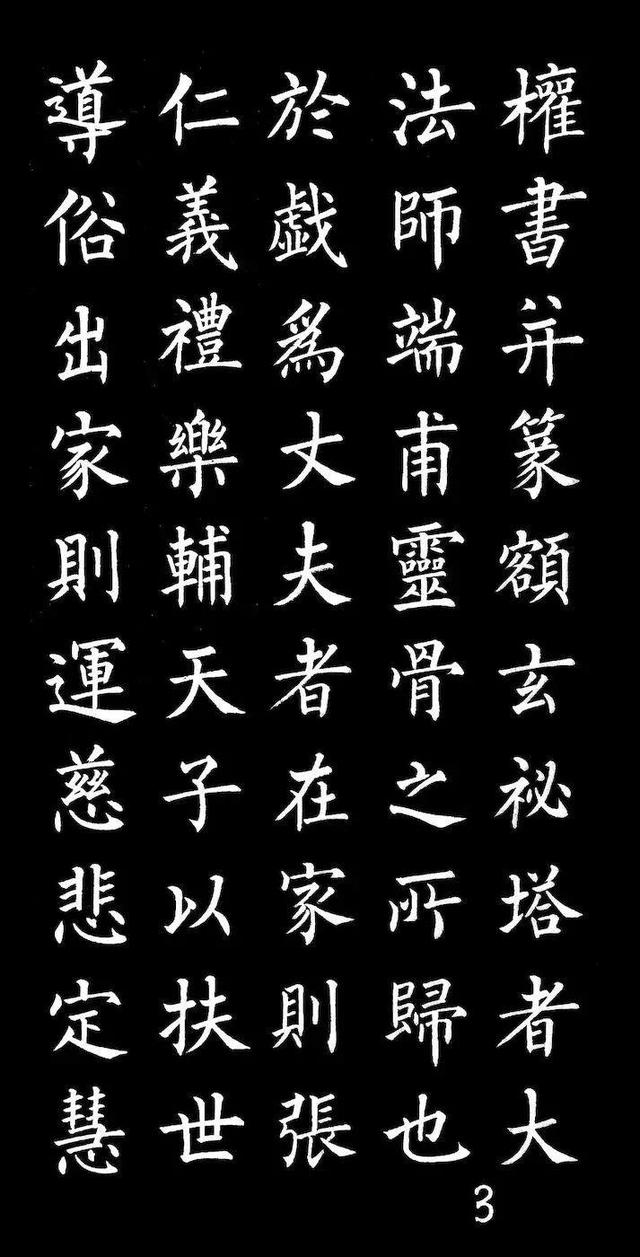 權書并篆額玄祕塔者大
法師端甫靈骨之所歸也
於戲爲丈夫者在家則張
仁義禮樂輔天子以扶世
導俗出家則運慈悲定慧
3